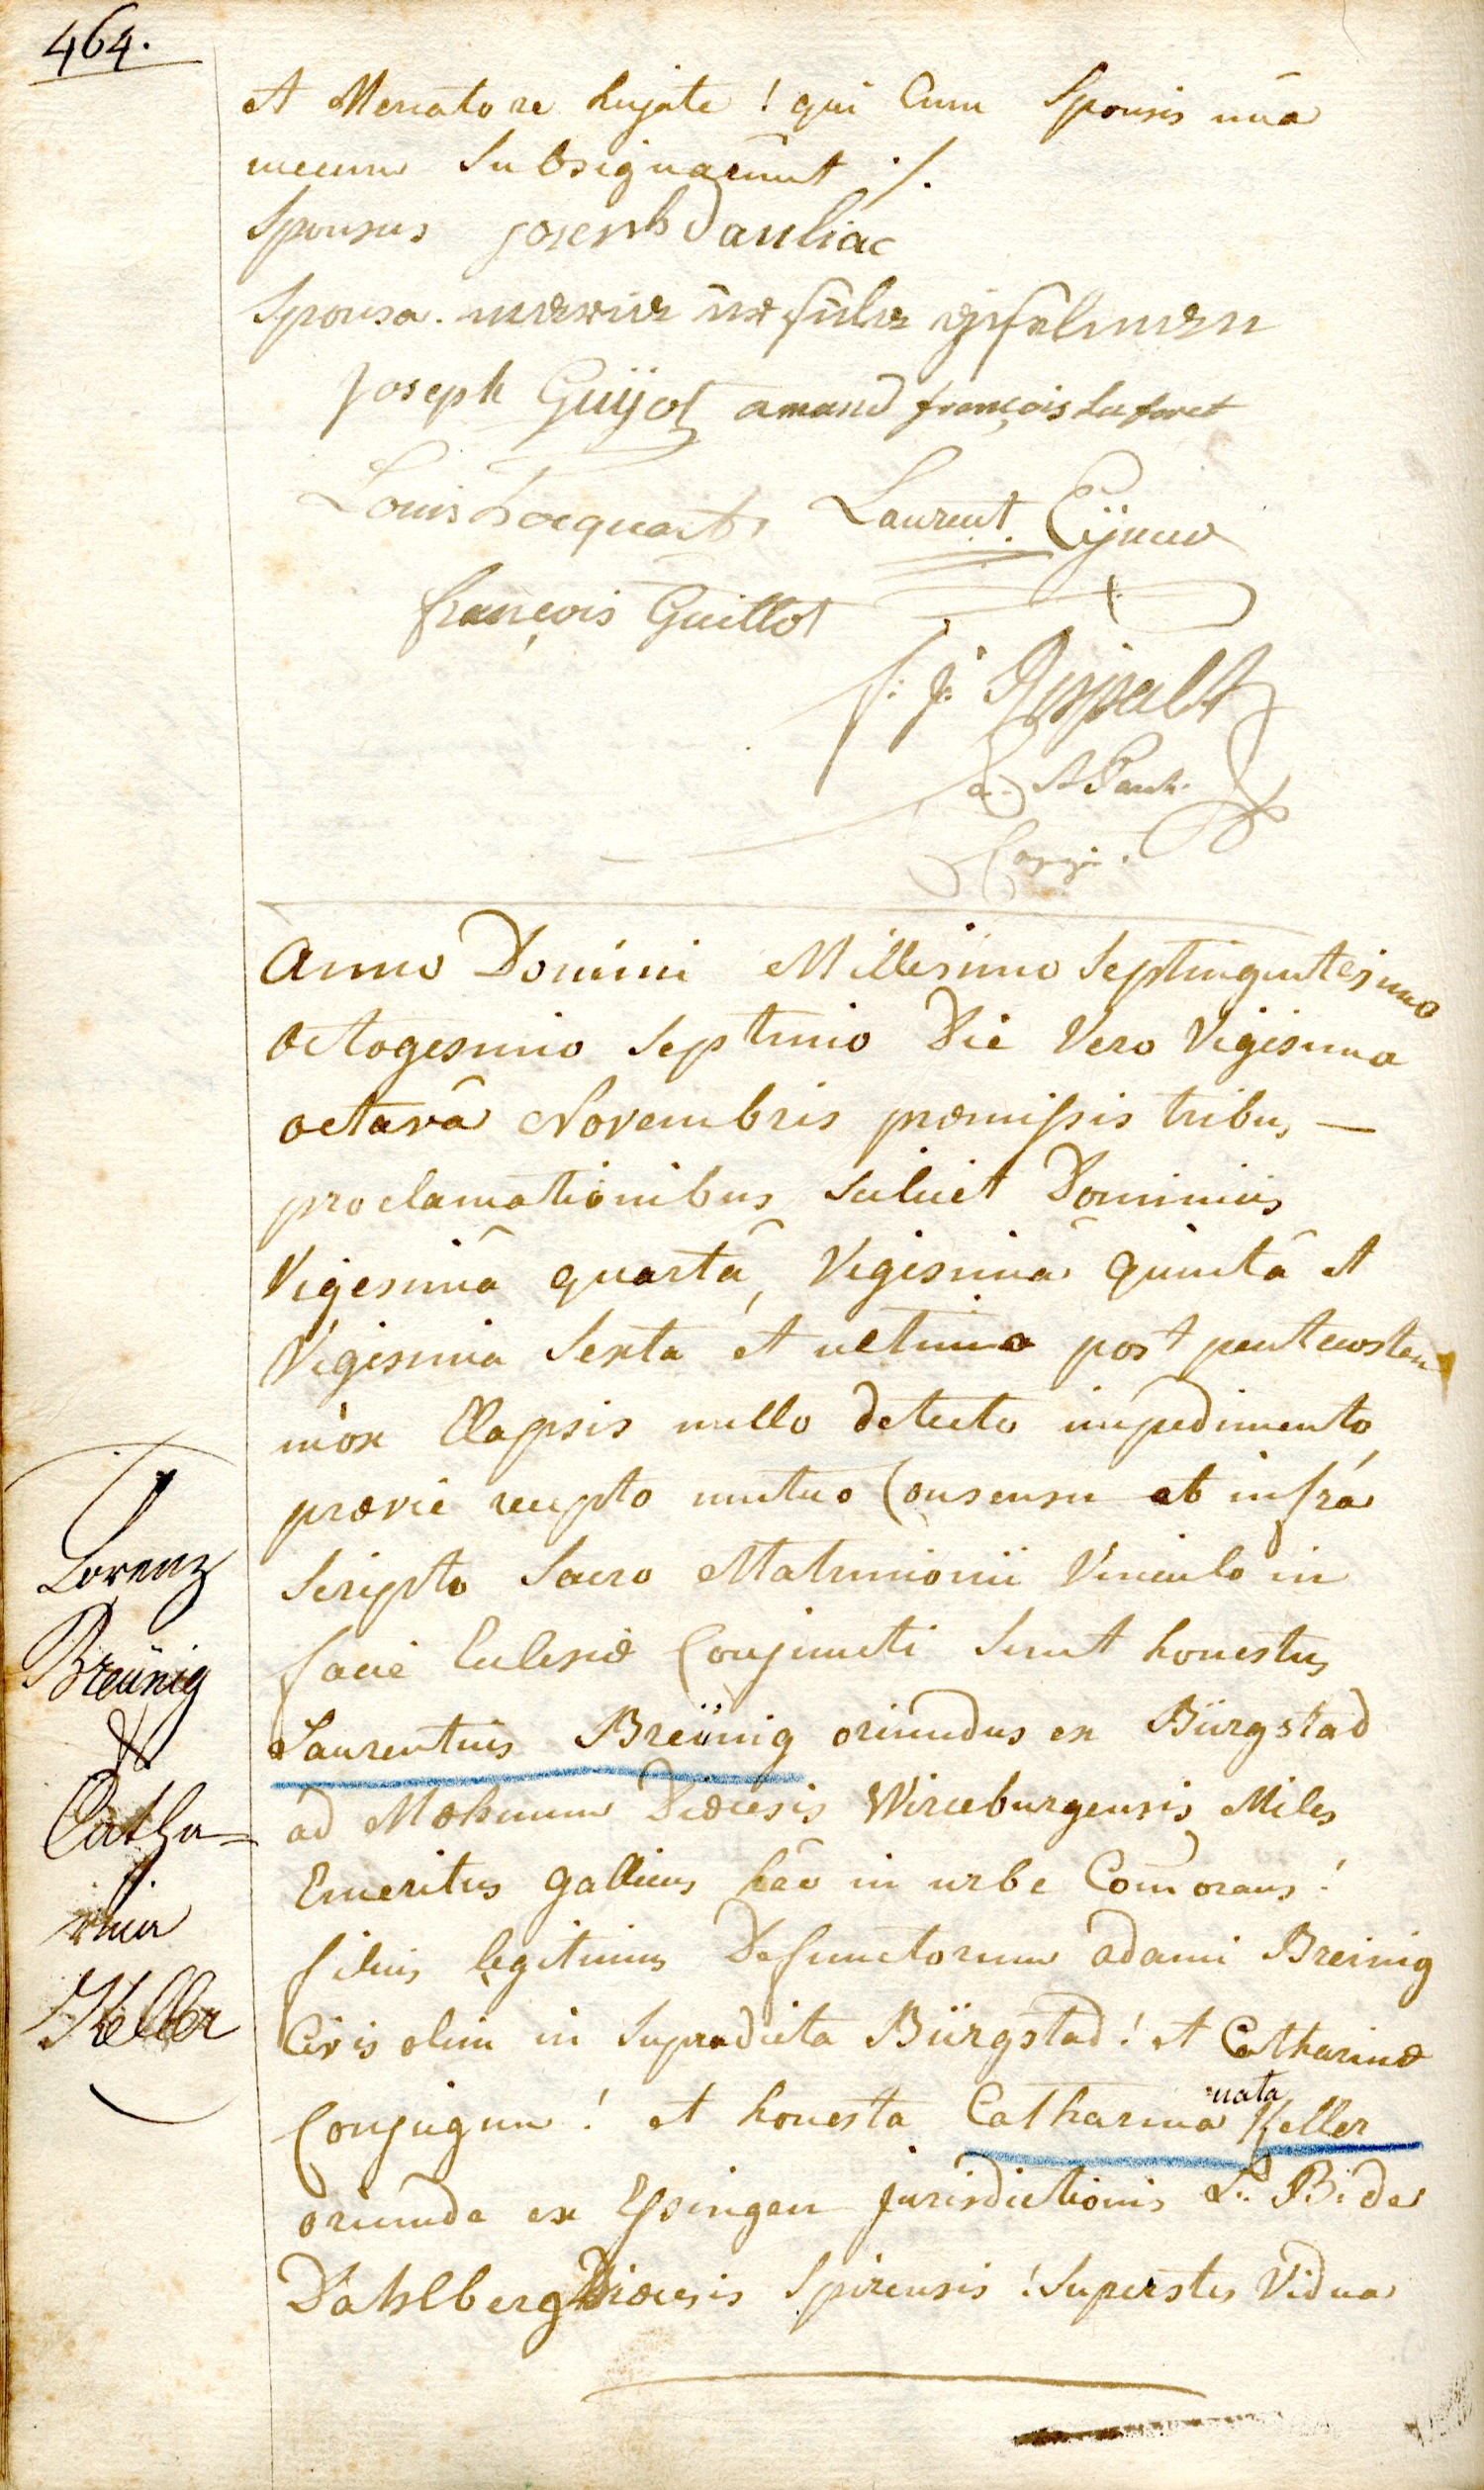 464.
et Mercatore hujate ! qui Cum Sponsis unà
mecum Subsignarunt ./.
Sponsus joseph dauliac
Sponsa. maria ursula
joseph Guÿot amand françois Laforet
Louis Laurent.
françois Guillot
f: j:
Anno Domini Millesimo Septingentesimo
octogesimo Septimo Die Vero Vigesima
octavâ Novembris præmissis tribus —
proclamationibus scilicet Dominicis
Vigesimâ quartâ, Vigesimâ quintâ et
Vigesima Sexta et ultima post pentecosten
mòx Elapsis nullo detecto impedimento,
prævie recepto mutuo Consensu ab infrà
Scripto Sacro Matrimonii Vinculo in
facie Eclesiæ Conjuncti Sunt honestus
Laurentius Breünig oriundus ex Bürgstad
ad Mœhnum Diœcesis Wirceburgensis Miles
Emeritus gallicus hâc in urbe Com̄orans !
filius legitimus Defunctorum adami Breinig
Civis olim in Supradicta Bürgstad ! et Catharinæ
Conjugum ! et honesta Catharina nata Keller
oriunda ex Essingen jurisdictionis L: B: de
Dahlberg Diœcesis Spirensis ! Superstes Vidua
Lorenz
Breünig
&
Catha=
rina
Keller